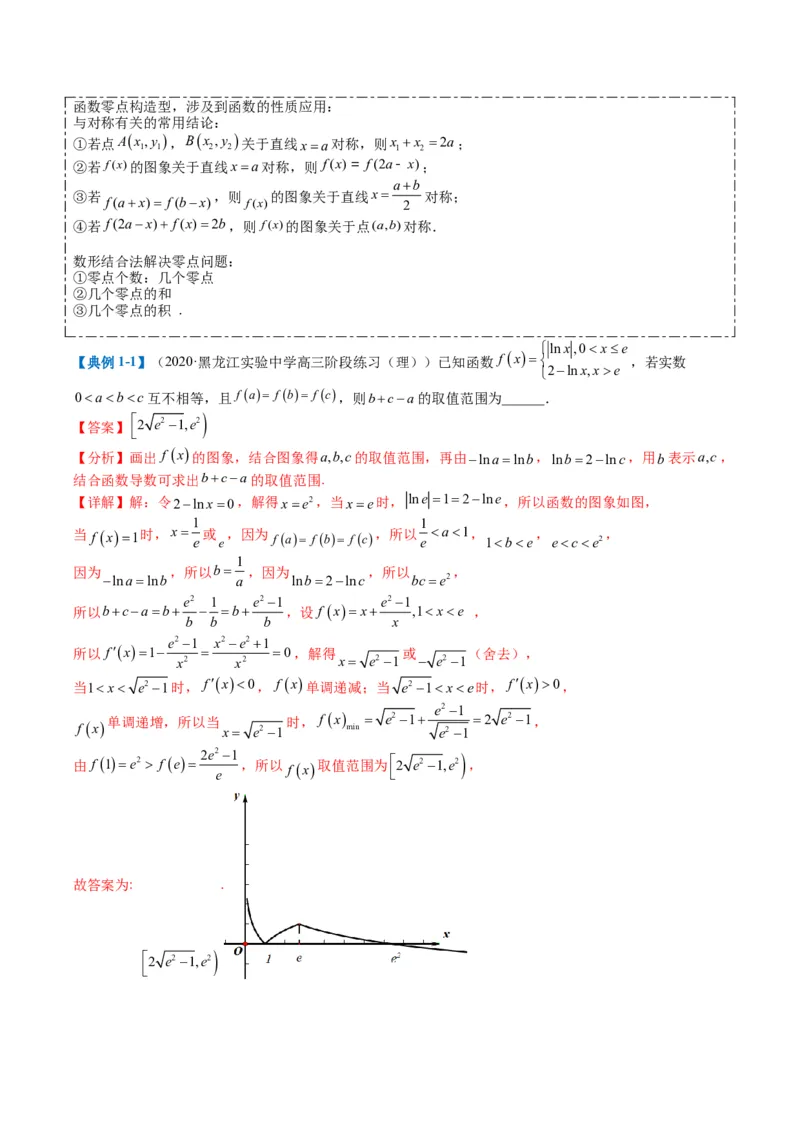 函数零点构造型，涉及到函数的性质应用：
与对称有关的常用结论：
①若点A(x₁,y₁)，B(x₂,y₂)关于直线x=a对称，则x₁+x₂=2a；
②若f(x)的图象关于直线x=a对称，则f(x)=f(2a-x)；
③若f(a+x)=f(b-x)，则f(x)的图象关于直线x=(a+b)/2对称；
④若f(2a-x)+f(x)=2b，则f(x)的图象关于点(a,b)对称．
数形结合法解决零点问题：
①零点个数：几个零点
②几个零点的和
③几个零点的积 .
【典例1-1】（2020·黑龙江实验中学高三阶段练习（理））已知函数f(x)={|lnx|,0<x≤e 2-lnx,x>e，若实数
0<a<b<c互不相等，且f(a)=f(b)=f(c)，则b+c-a的取值范围为______．
【答案】[2√(e²-1),e²)
【分析】画出f(x)的图象，结合图象得a,b,c的取值范围，再由-lna=lnb，lnb=2-lnc，用b表示a,c，
结合函数导数可求出b+c-a的取值范围.
【详解】解：令2-lnx=0，解得x=e²，当x=e时，lne=1=2-lne，所以函数的图象如图，
当f(x)=1时，x=1/e或e，因为f(a)=f(b)=f(c)，所以1/e<a<1，1<b<e，e<c<e²，
因为-lna=lnb，所以b=1/a，因为lnb=2-lnc，所以bc=e²，
所以b+c-a=b+e²/b-1/b=b+(e²-1)/b，设f(x)=x+(e²-1)/x,1<x<e ，
所以f′(x)=1-(e²-1)/x²=(x²-e²+1)/x²=0，解得x=√(e²-1)或-√(e²-1)（舍去），
当1<x<√(e²-1)时，f′(x)<0，f(x)单调递减；当√(e²-1)<x<e时，f′(x)>0，
f(x)单调递增，所以当x=√(e²-1)时，f(x)min=√(e²-1)+(e²-1)/√(e²-1)=2√(e²-1)，
由f(1)=e²>f(e)=(2e²-1)/e，所以f(x)取值范围为[2√(e²-1),e²)，
y
故答案为: [2√(e²-1),e²).
x
O 1 e e²